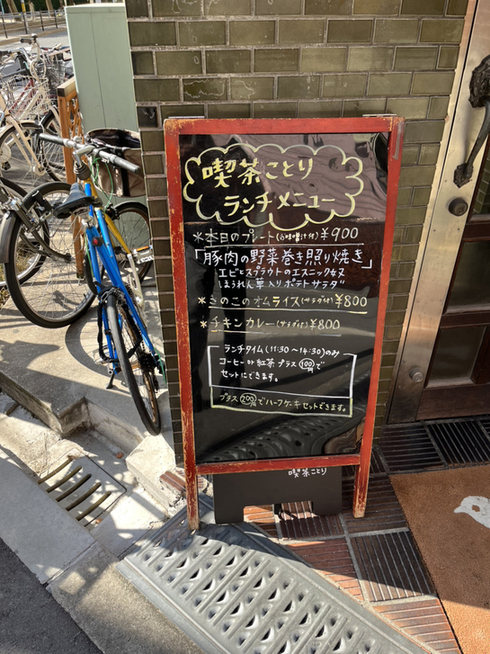 喫茶ことり
ランチメニュー
*本日のプレート(小味噌汁付)¥900
「豚肉の野菜巻き照り焼き」
エビとスプラウトのエスニック和え
ほうれん草入りポテトサラダ
*きのこのオムライス(サラダ付)¥800
*チキンカレー(サラダ付)¥800
ランチタイム(11:30〜14:30)のみ
コーヒーor紅茶プラス100円で
セットにできます。
プラス200円でハーフケーキセットできます。
喫茶ことり